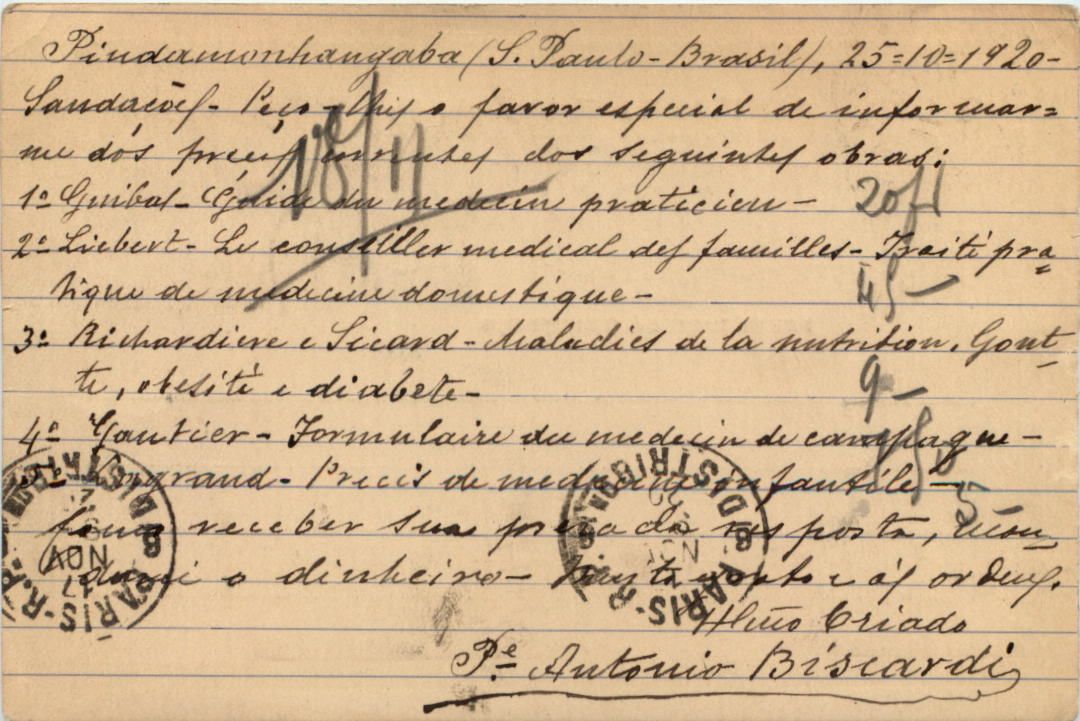 Pindamonhangaba (S. Paulo - Brasil), 25=10=1920-
Saudacões - Peço-lhes o favor especial de informar=
me dós preços correntes dos seguintes obras:
1º Guibal - Guide du medecin praticien - 20 fl
2º Liebert - Le conseiller medical des familles - Traité pra=
tique de medecine domestique - 45 -
3º Richardiere e Sicard - Maladies de la nutrition. Gout-
te, obesité e diabete - 9 -
4º Gautier - Formulaire du medecin de campagne -
Precis de medecine infantile -
receber sua presada resposta,
o dinheiro - e ás ordens.
Criado
Pe. Antonio Biscardi
18/11
PARIS-R.P. DISTRIBUTION
17 NOV
PARIS-R.P. DISTRIBUTION